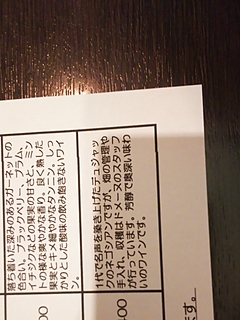 落ち着いた深みのあるガーネットの
色合い。ブラックベリー、プラム、
イチジクなどの果実の甘さと、ミン
トの様な爽やかな香り。良く熟した
果実とキメ細やかなタンニン、しっ
かりとした酸味の飲み飽きないワイ
ン。
00
11代で名声を築き上げたデュジャッ
クのネゴシアンですが、畑の管理や
手入れ、収穫はドメーヌのスタッフ
が行っています。芳醇で奥深い味わ
いのワインです。
00
ます。